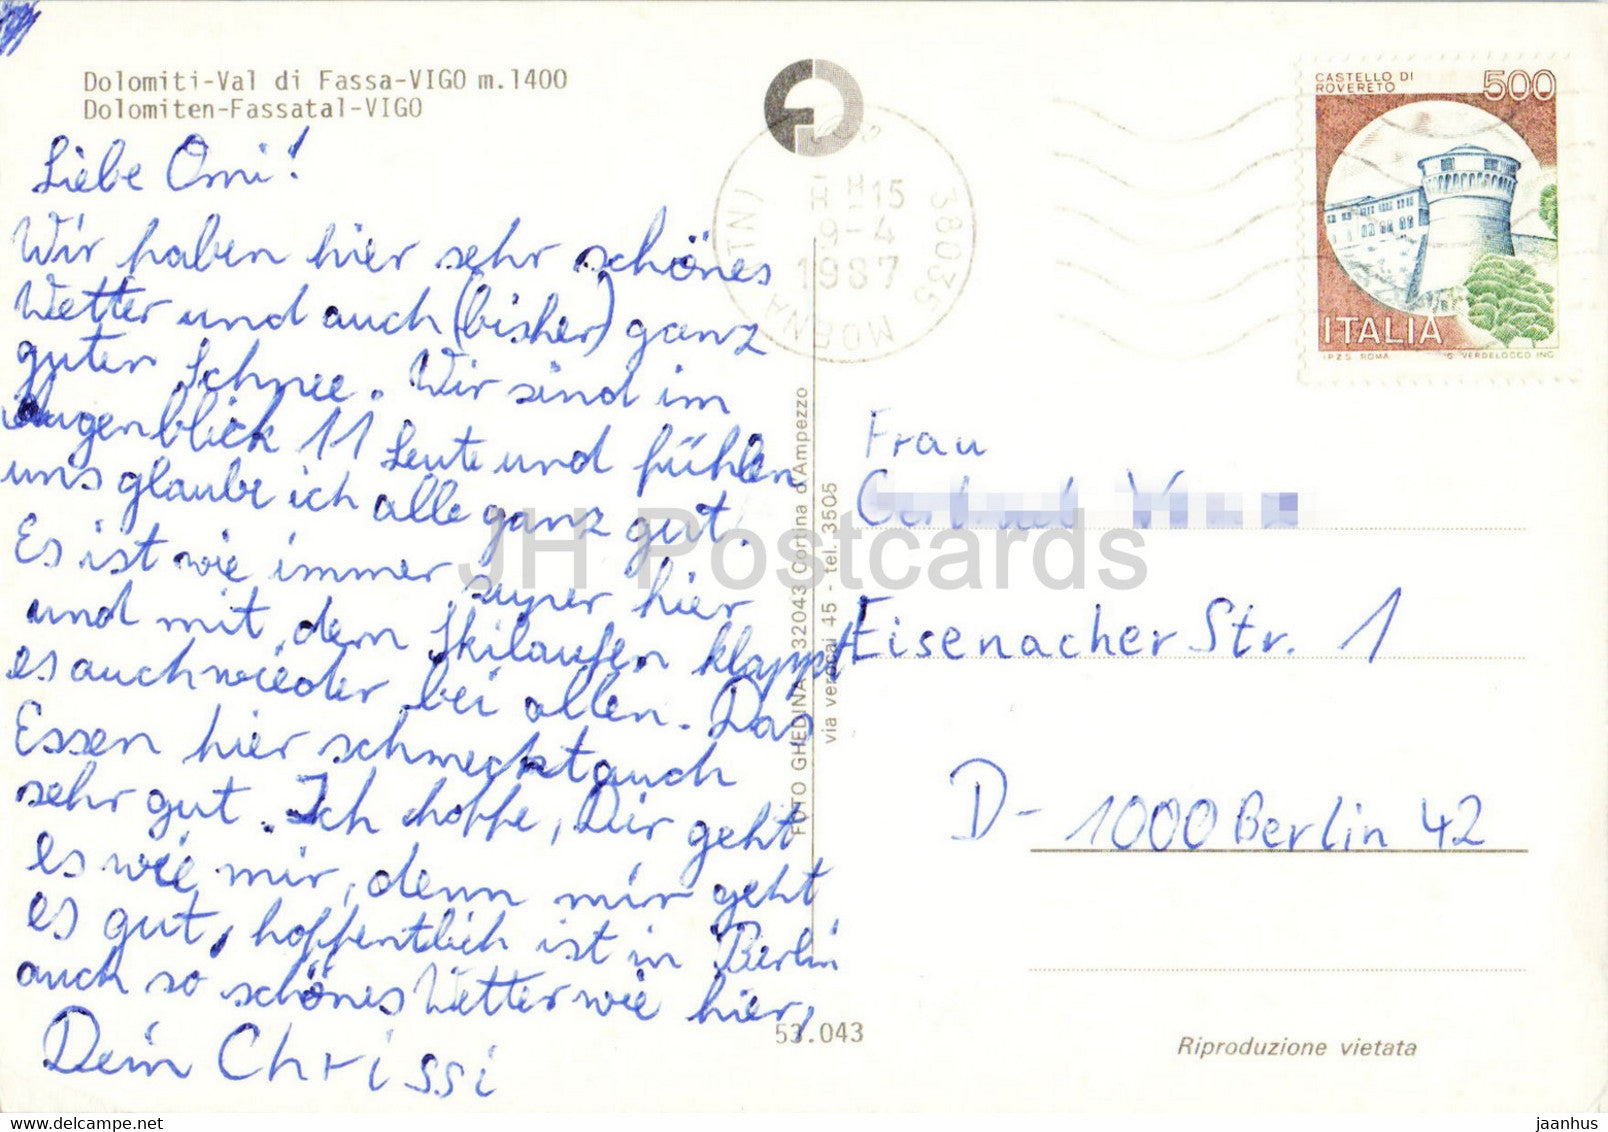 Dolomiti-Val di Fassa-VIGO m.1400
Dolomiten-Fassatal-VIGO
Liebe Omi!
Wir haben hier sehr schönes
Wetter und auch (bisher) ganz
guten Schnee. Wir sind im
Augenblick 11 Leute und fühlen
uns glaube ich alle ganz gut.
Es ist wie immer super hier
und mit dem Skilaufen klappt
es auch wieder bei allen. Das
Essen hier schmeckt auch
sehr gut. Ich hoffe, Dir geht
es wie mir, denn mir geht
es gut, hoffentlich ist in Berlin
auch so schönes Wetter wie hier,
Dein Chrissi
FOTO GHEDINA 32043 Cortina d'Ampezzo
via verocai 45 - tel. 3505
53.043
38035 MOENA (TN)
H15
9-4
1987
CASTELLO DI
ROVERETO
500
ITALIA
I.P.Z.S. ROMA
VERDELOCCO INC.
Frau
Eisenacher Str. 1
D-1000 Berlin 42
Riproduzione vietata
JH Postcards
jaanhus
www.delcampe.net